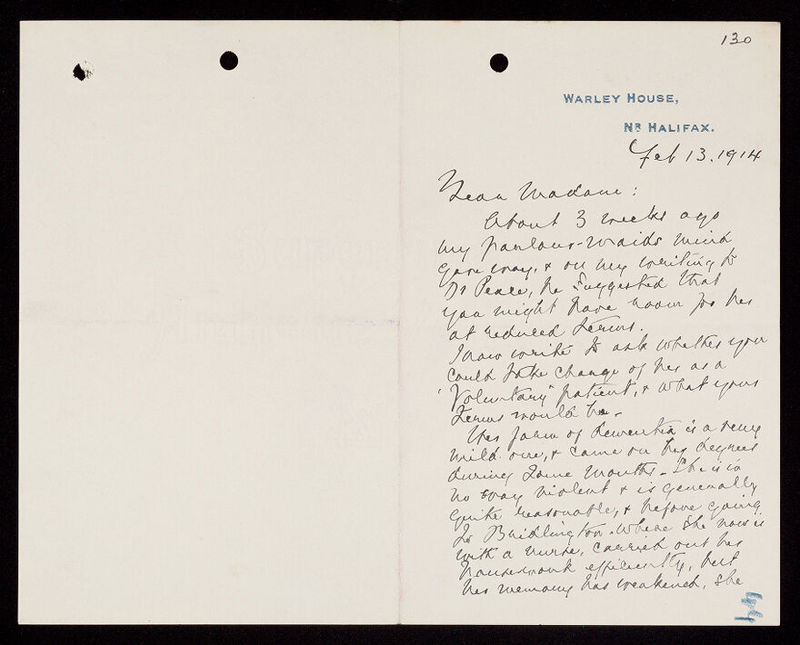 130
WARLEY HOUSE,
NR HALIFAX.
Feb 13. 1914
Dear Madam:
About 3 weeks ago
my parlour-maids mind
gave way, & on my writing to
Dr Peace, he suggested that
you might have room for her
at reduced terms.
I now write to ask whether you
could take charge of her as a
"Voluntary" patient, & what your
terms would be.
Her form of dementia is a very
mild one, & came on by degrees
during some months. She is in
no way violent & is generally
quite reasonable, & before going
to Bridlington where she now is
with a nurse, carried out her
housework efficiently, but
her memory has weakened, she